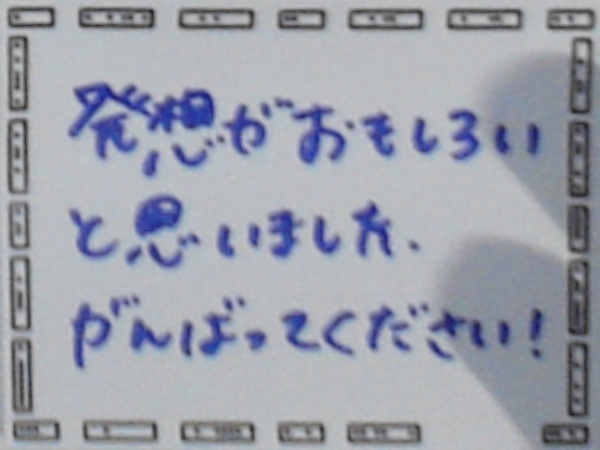 発想がおもしろい
と思いました.
がんばってください!